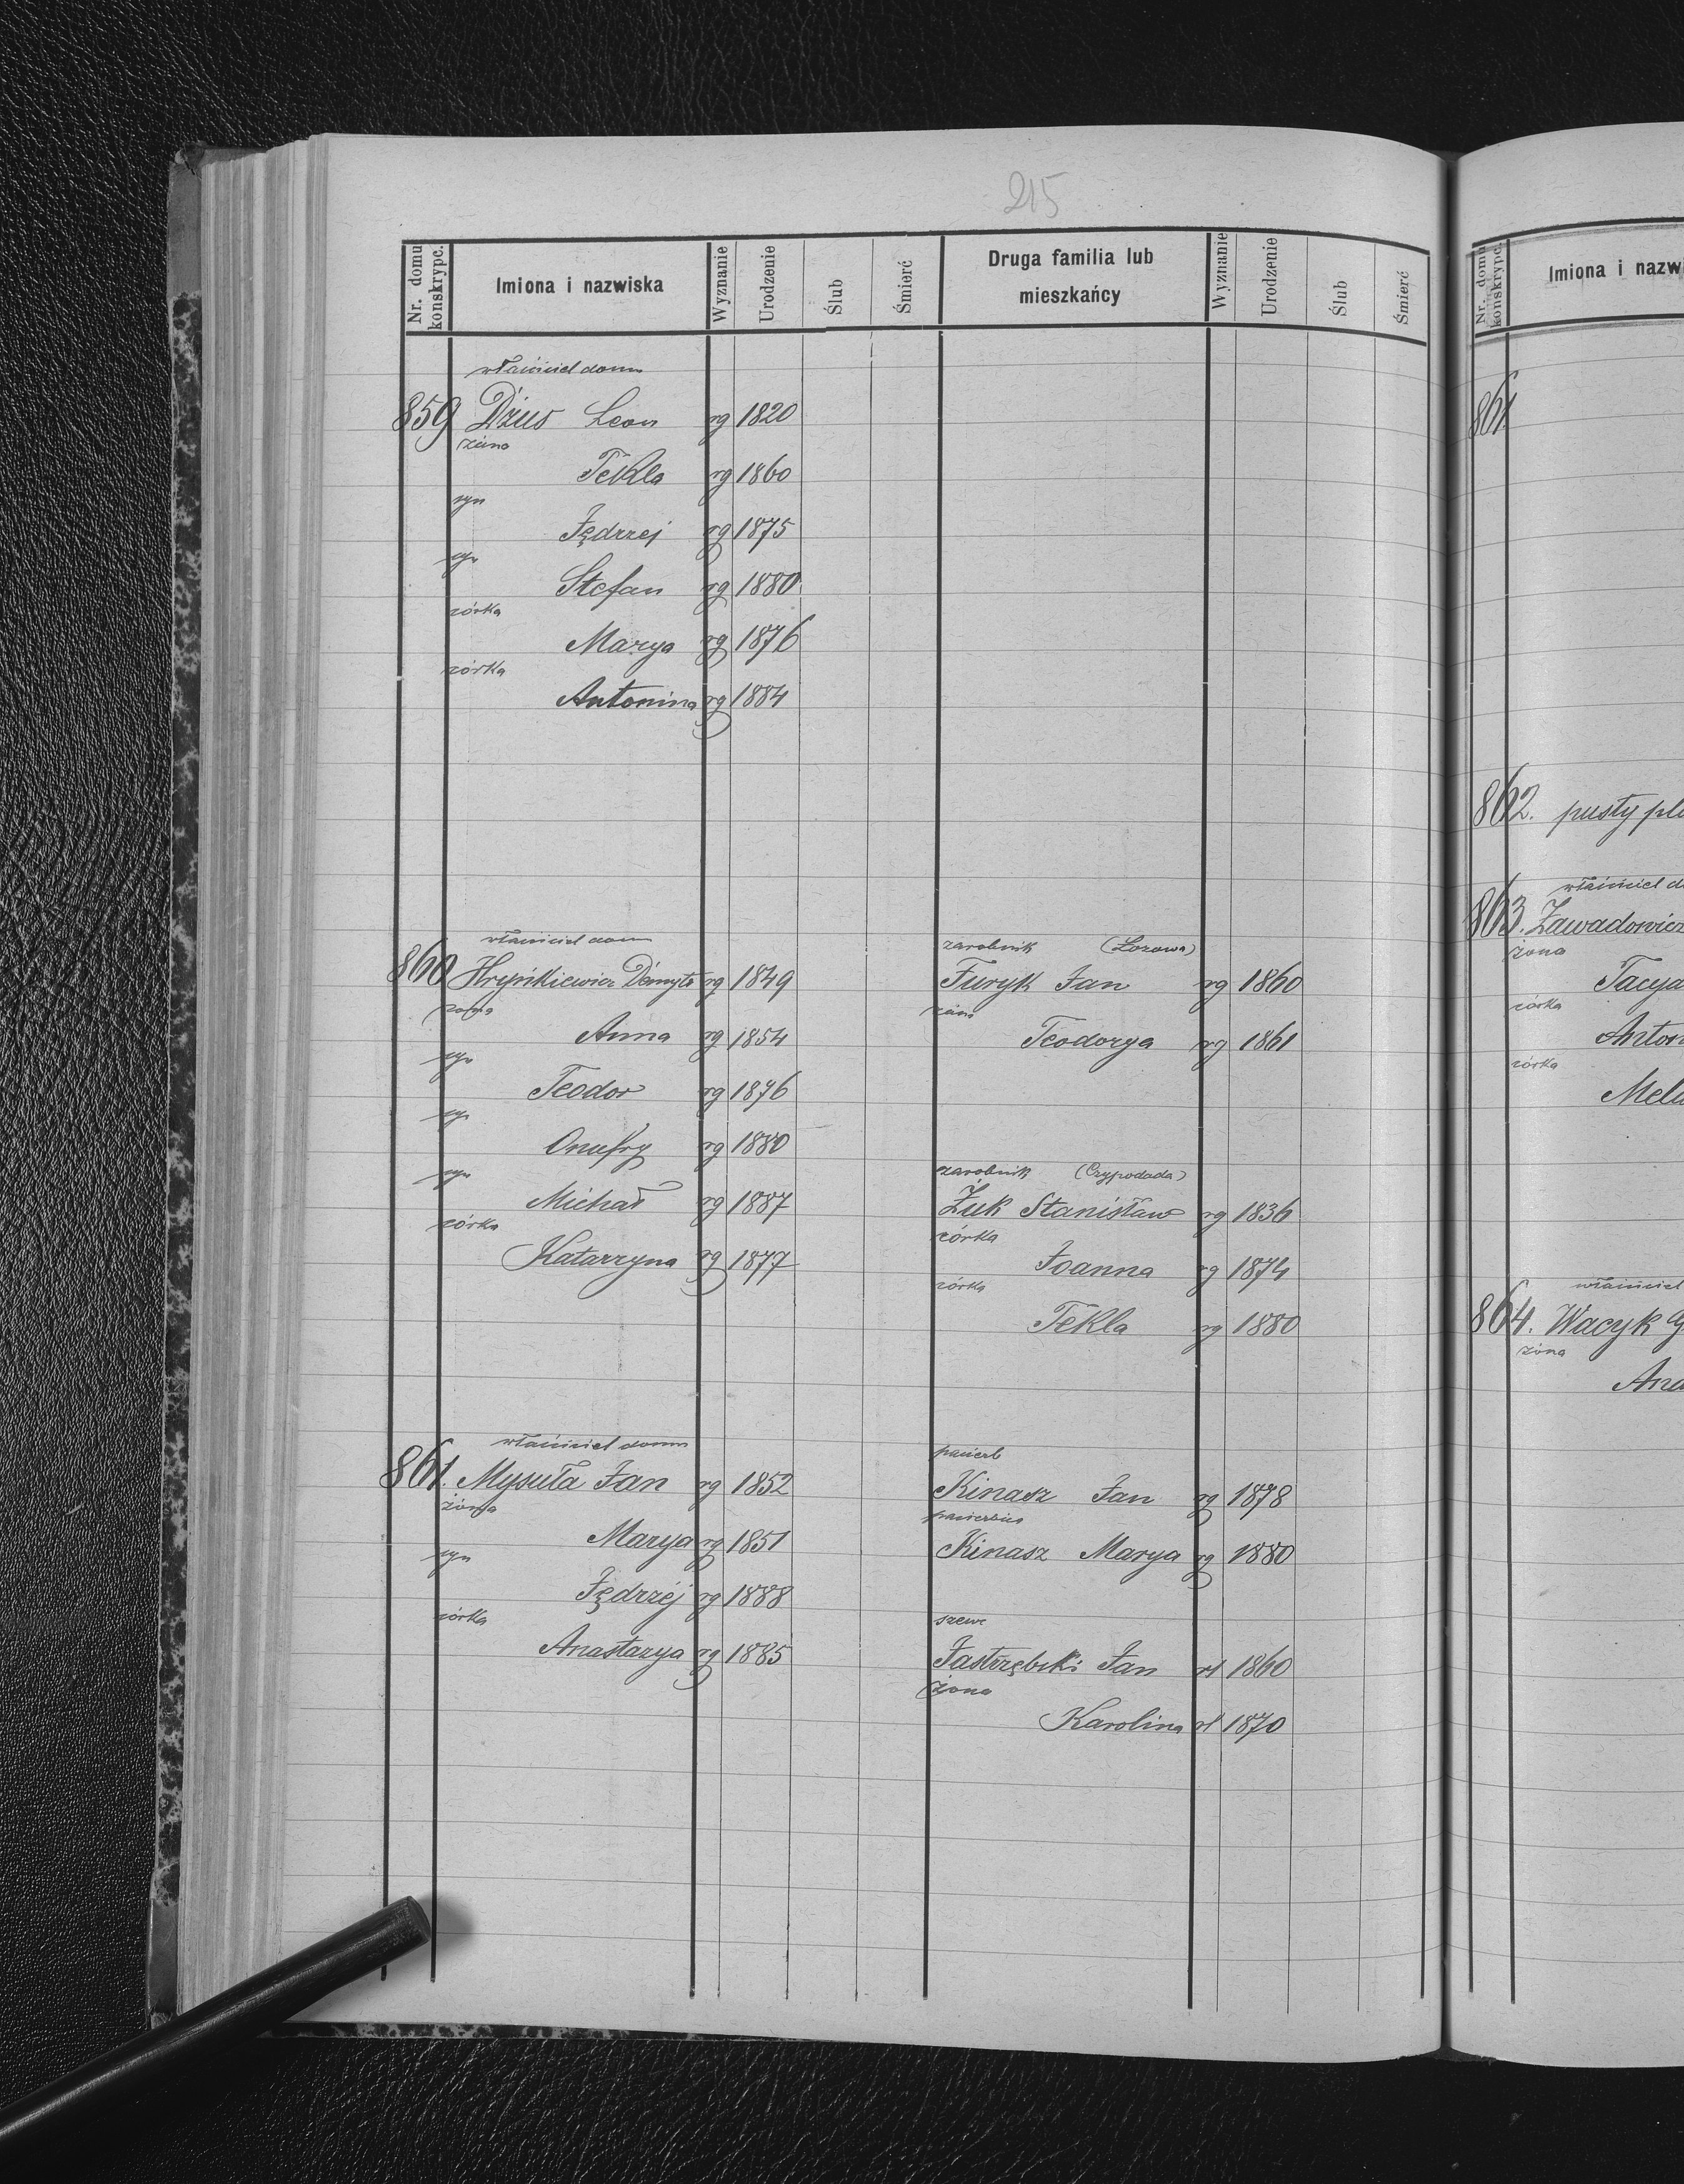 215
Nr. domu konskrypc. Imiona i nazwiska Wyznanie Urodzenie Ślub Śmierć Druga familia lub mieszkańcy Wyznanie Urodzenie Ślub Śmierć
właściciel domu
859 Dżus Leon rg 1820
żona
Tekla rg 1860
syn
Jędrzej rg 1875
syn
Stefan rg 1880
córka
Marya rg 1876
córka
Antonina rg 1884
właściciel domu
860 Hryńkiewicz Dmyto rg 1849
żona
Anna rg 1854
syn
Teodor rg 1876
syn
Onufry rg 1880
syn
Michał rg 1887
córka
Katarzyna rg 1877
zarobnik (Łozowa)
Furyk Jan rg 1860
żona
Teodozya rg 1861
zarobnik
Żuk Stanisław rg 1836
córka
Joanna rg 1874
córka
Tekla rg 1880
właściciel domu
861. Mysuła Jan rg 1852
żona
Marya rg 1851
syn
Jędrzéj rg 1888
córka
Anastazya rg 1885
pasierb
Kinasz Jan rg 1878
pasierbica
Kinasz Marya rg 1880
szewc
Jastrzębski Jan rł 1860
żona
Karolina rł 1870
Nr. domu konskrypc. Imiona i nazwi
861
862. pusty pl
właściciel d
863. Zawadowicz
żona
Tacya
córka
Anton
córka
Mela
właściciel
864. Wacyk
żona
Ana